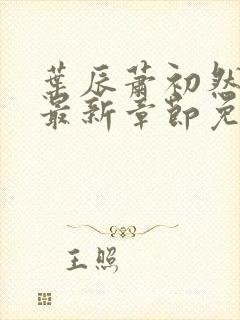 葉辰蕭初然
最新章節免
王照